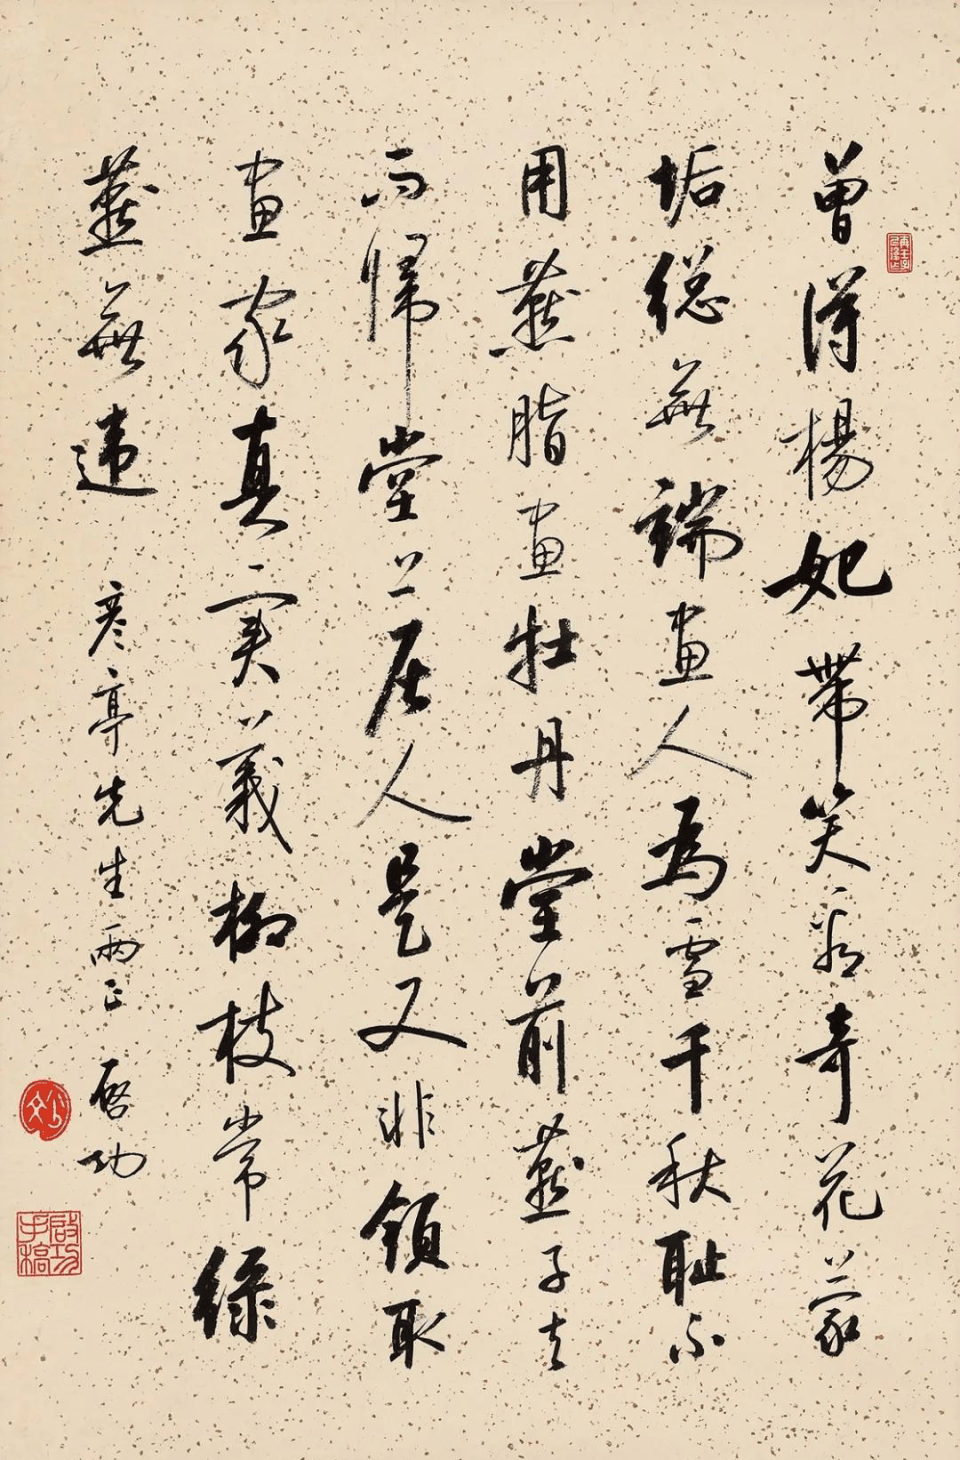 曾得楊妃帶笑看奇花蒙
垢總無端畫人為雪千秋恥不
用燕脂畫牡丹堂前燕子去
而歸堂上居人是又非領取
畫家真實義柳枝常綠
燕無違
彥亭先生兩正 啓功
啟功手稿